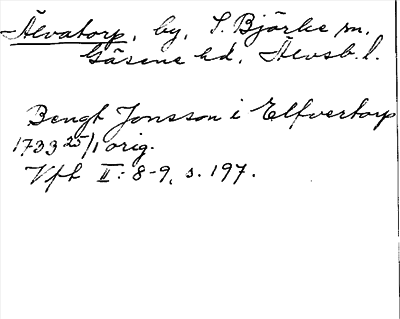 Älvatorp, by, S. Björke sn.
Gäsene hd, Älvsb. l.
Bengt Jonsson i Elfvertorp
1733 25/1 orig.
Vft II: 8-9, s. 197.